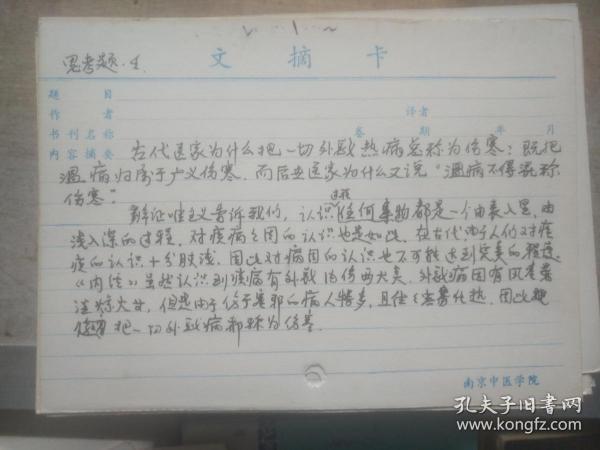 思考题·4.
文摘卡
题目
作者 译者
书刊名称 卷 期 年 月
内容摘要 古代医家为什么把一切外感热病总称为伤寒；既把
温病归属于广义伤寒，而后世医家为什么又说"温病不得混称
伤寒"。
辩证唯主义告诉我们，认识任何事物都是一个由表入里，由
过程
浅入深的过程，对疾病之因的认识也是如此，在古代由于人们对疾
疾的认识十分肤浅，因此对病因的认识也不可能达到完美的程度
《内经》虽然认识到疾病有外感内伤两大类，外感病因有风寒暑
湿燥火，但是由于伤于寒邪的病人特多，且往往发热，因此
把一切外感病都称为伤寒.
南京中医学院
孔夫子旧书网